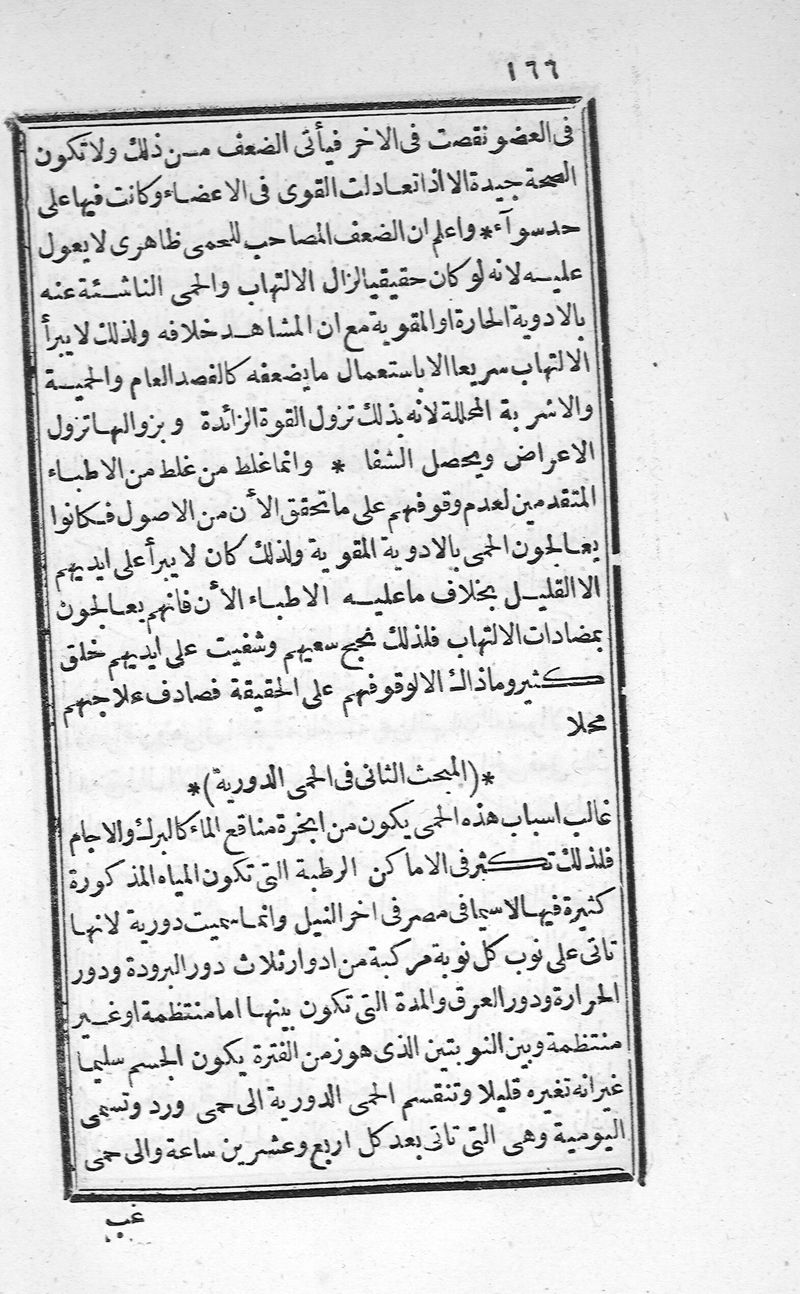 ١٦٦
فى العضو نقصت فى الاخر فيأتى الضعف من ذلك ولا تكون
الصحة جيدة الا اذا تعادلت القوى فى الاعضاء وكانت فيها على
حد سوآء * واعلم ان الضعف المصاحب للحمى ظاهرى لا يعول
عليه لانه لو كان حقيقيا لزال الالتهاب والحمى الناشئة عنه
بالادوية الحارة او المقوية مع ان المشاهد خلافه ولذلك لا يبرأ
الالتهاب سريعا الا باستعمال ما يضعفه كالفصد العام والحمية
والاشربة المحللة لانه بذلك تزول القوة الزائدة وبزوالها تزول
الاعراض ويحصل الشفا * وانما غلط من غلط من الاطباء
المتقدمين لعدم وقوفهم على ما تحقق الأن من الاصول فكانوا
يعالجون الحمى بالادوية المقوية ولذلك كان لا يبرأ على ايديهم
الا القليل بخلاف ما عليه الاطباء الأن فانهم يعالجون
بمضادات الالتهاب فلذلك نجح سعيهم وشفيت على ايديهم خلق
كثير وما ذاك الا لوقوفهم على الحقيقة فصادف علاجهم
محلا
*(المبحث الثانى فى الحمى الدورية)*
غالب اسباب هذه الحمى يكون من ابخرة مناقع الماء كالبرك والاجام
فلذلك تكثر فى الاماكن الرطبة التى تكون المياه المذكورة
كثيرة فيها لاسيما فى مصر فى اخر النيل وانما سميت دورية لانها
تاتى على نوب كل نوبة مركبة من ادوار ثلاث دور البرودة ودور
الحرارة ودور العرق والمدة التى تكون بينها اما منتظمة او غير
منتظمة وبين النوبتين الذى هو زمن الفترة يكون الجسم سليما
غير انه تغيره قليلا وتنقسم الحمى الدورية الى حمى ورد وتسمى
اليومية وهى التى تاتى بعد كل اربع وعشرين ساعة والى حمى
غب